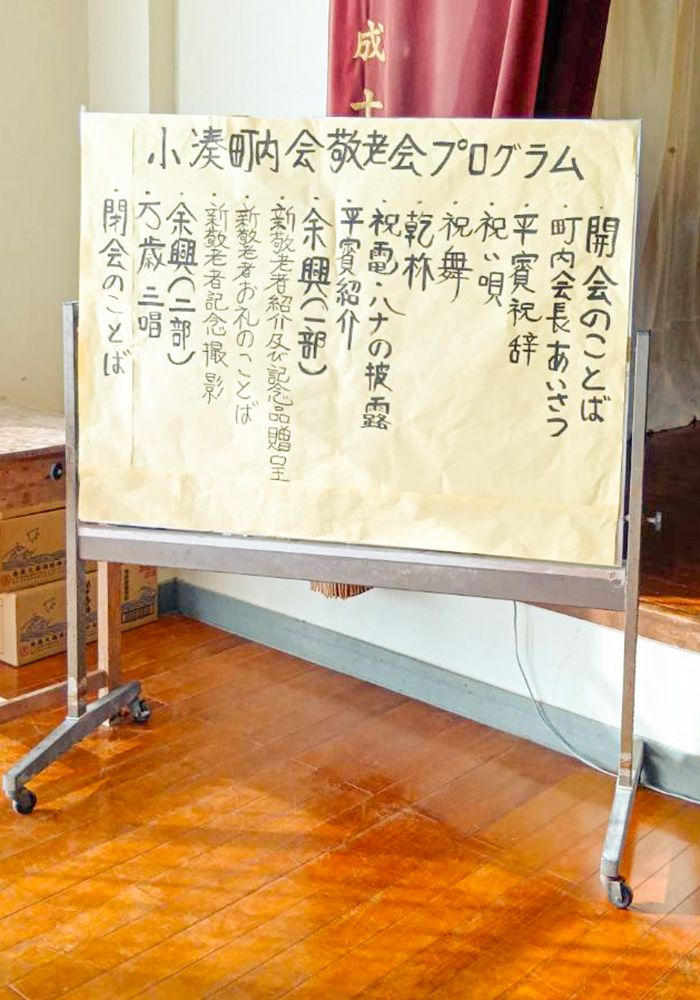 成十
小湊町内会敬老会プログラム
・開会のことば
・町内会長あいさつ
・平賓祝辞
・祝い唄
・祝舞
・乾杯
・祝電・ハナの披露
・平賓紹介
・余興(一部)
・新敬老者紹介及び記念品贈呈
・新敬老者お礼のことば
・新敬老者記念撮影
・余興(二部)
・万歳三唱
・閉会のことば